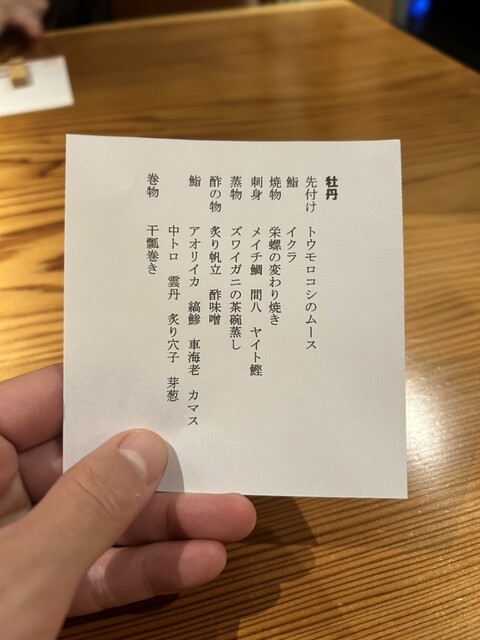 牡丹
先付け　トウモロコシのムース
鮨　イクラ
焼物　栄螺の変わり焼き
刺身　メイチ鯛　間八　ヤイト鰹
蒸物　ズワイガニの茶碗蒸し
酢の物　炙り帆立　酢味噌
鮨　アオリイカ　縞鯵　車海老　カマス
中トロ　雲丹　炙り穴子　芽葱
巻物　干瓢巻き